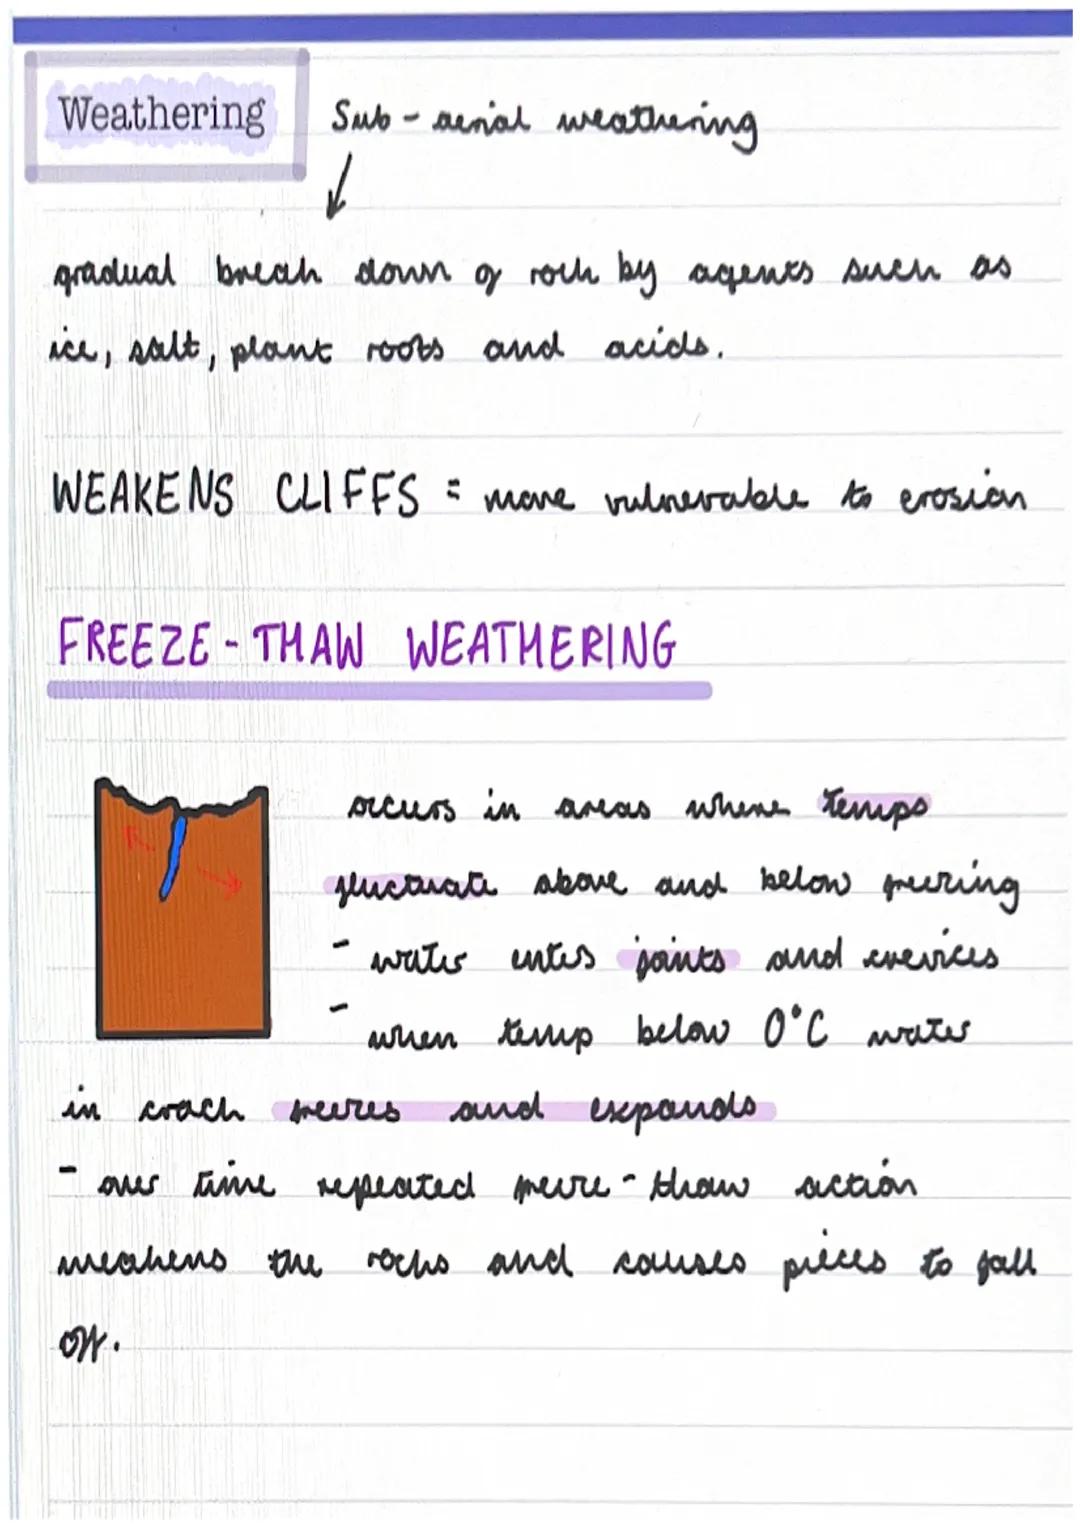 Weathering Sub-aerial weathering
gradual break down of rock by agents such as
ice, salt, plant roots and acids.
WEAKENS CLIFFS = more vulnerable to erosion
FREEZE-THAW WEATHERING
occurs in areas where temps
fluctuate above and below freezing
- water enters joints and crevices
- when temp below 0°C water
in crack freezes and expands
- over time repeated freeze-thaw action
weakens the rocks and causes pieces to fall
off.